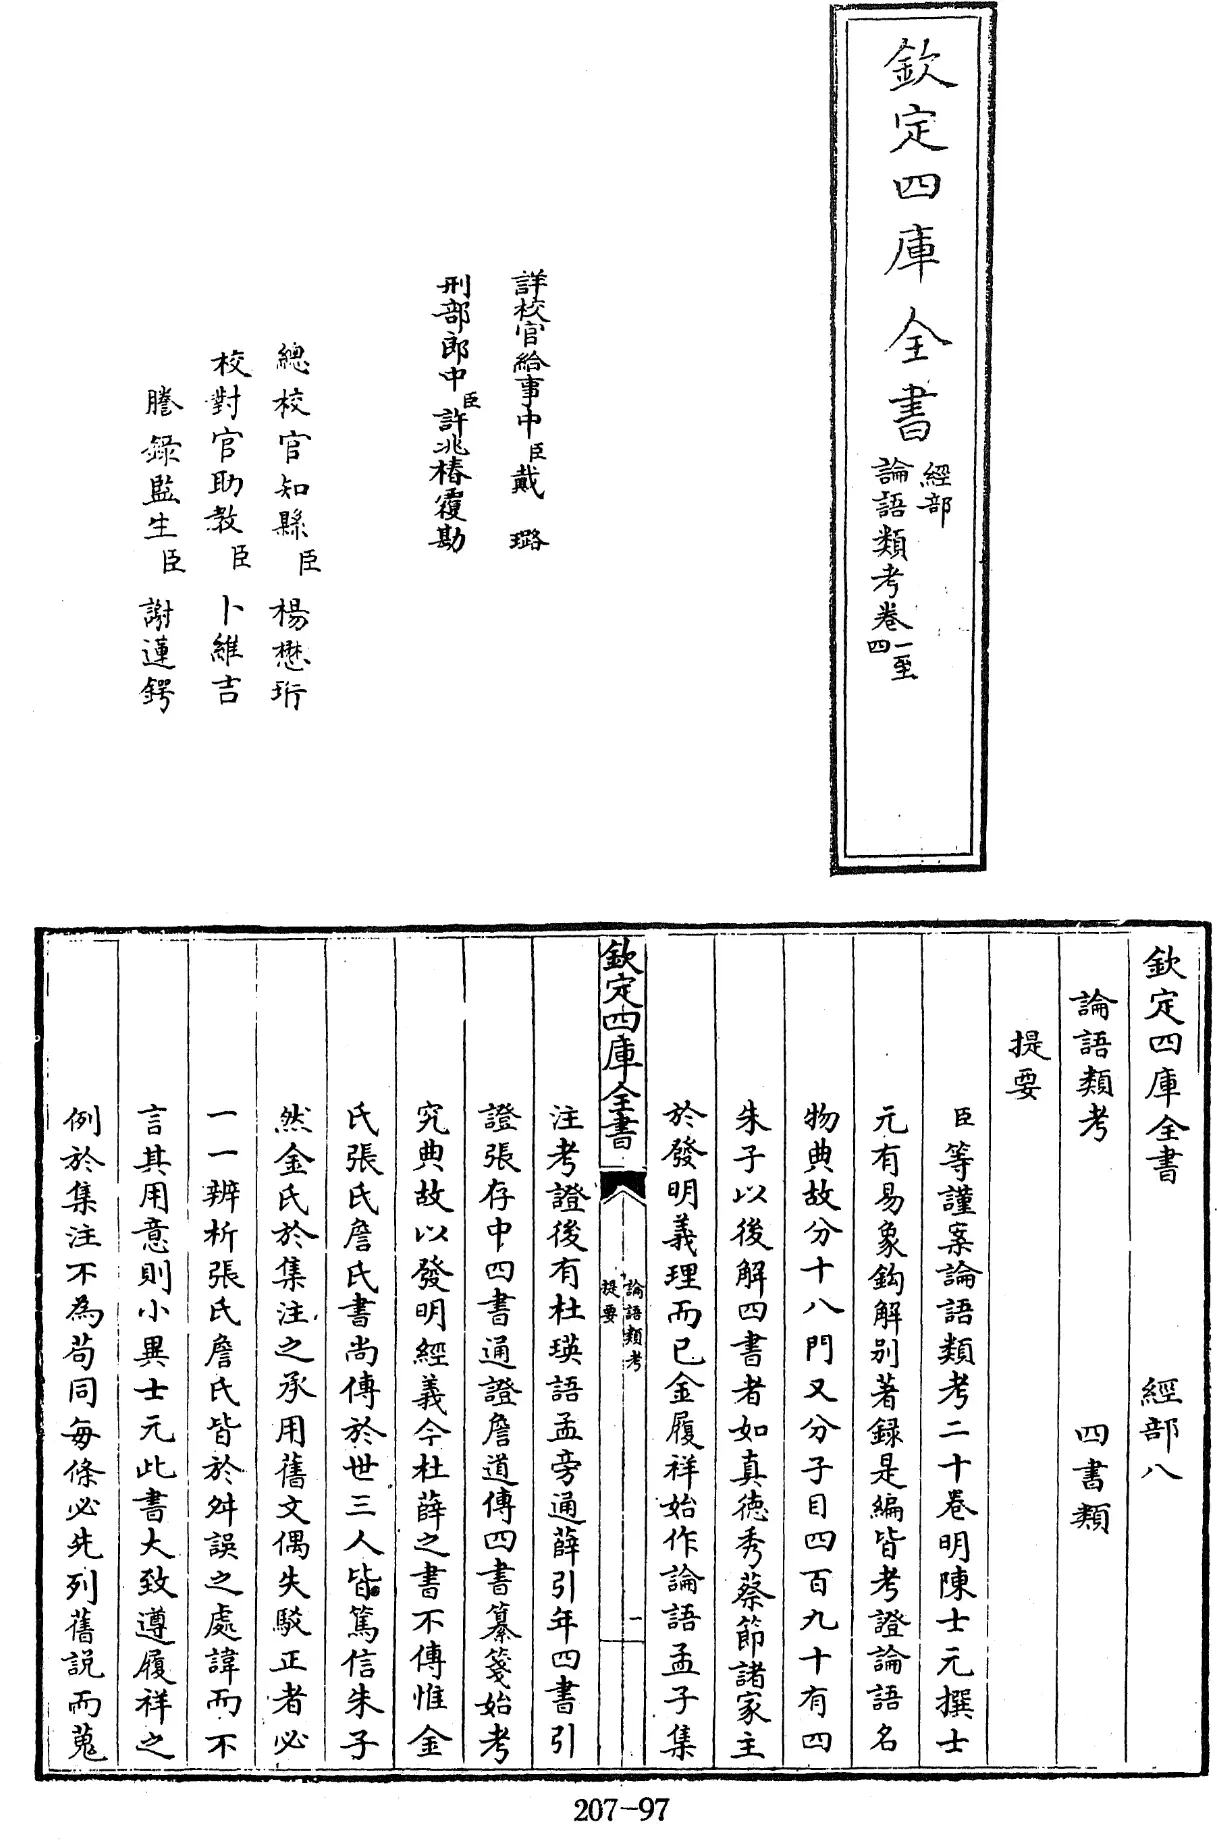 欽定四庫全書
經部
論語類考卷一至四
詳校官給事中臣戴璐
刑部郎中臣許兆椿覆勘
總校官知縣臣楊懋珩
校對官助教臣卜維吉
謄錄監生臣謝蓮鍔
欽定四庫全書 經部八
論語類考 四書類
提要
臣等謹案論語類考二十卷明陳士元撰士
元有易象鈎解別著録是編皆考證論語名
物典故分十八門又分子目四百九十有四
朱子以後解四書者如真德秀蔡節諸家主
於發明義理而已金履祥始作論語孟子集
欽定四庫全書
論語類考
提要
一
注考證後有杜瑛語孟旁通薛引年四書引
證張存中四書通證詹道傳四書纂箋始考
究典故以發明經義今杜薛之書不傳惟金
氏張氏詹氏書尚傳於世三人皆篤信朱子
然金氏於集注之承用舊文偶失駮正者必
一一辨析張氏詹氏皆於舛誤之處諱而不
言其用意則小異士元此書大致遵履祥之
例於集注不為苟同每條必先列舊説而蒐
207-97